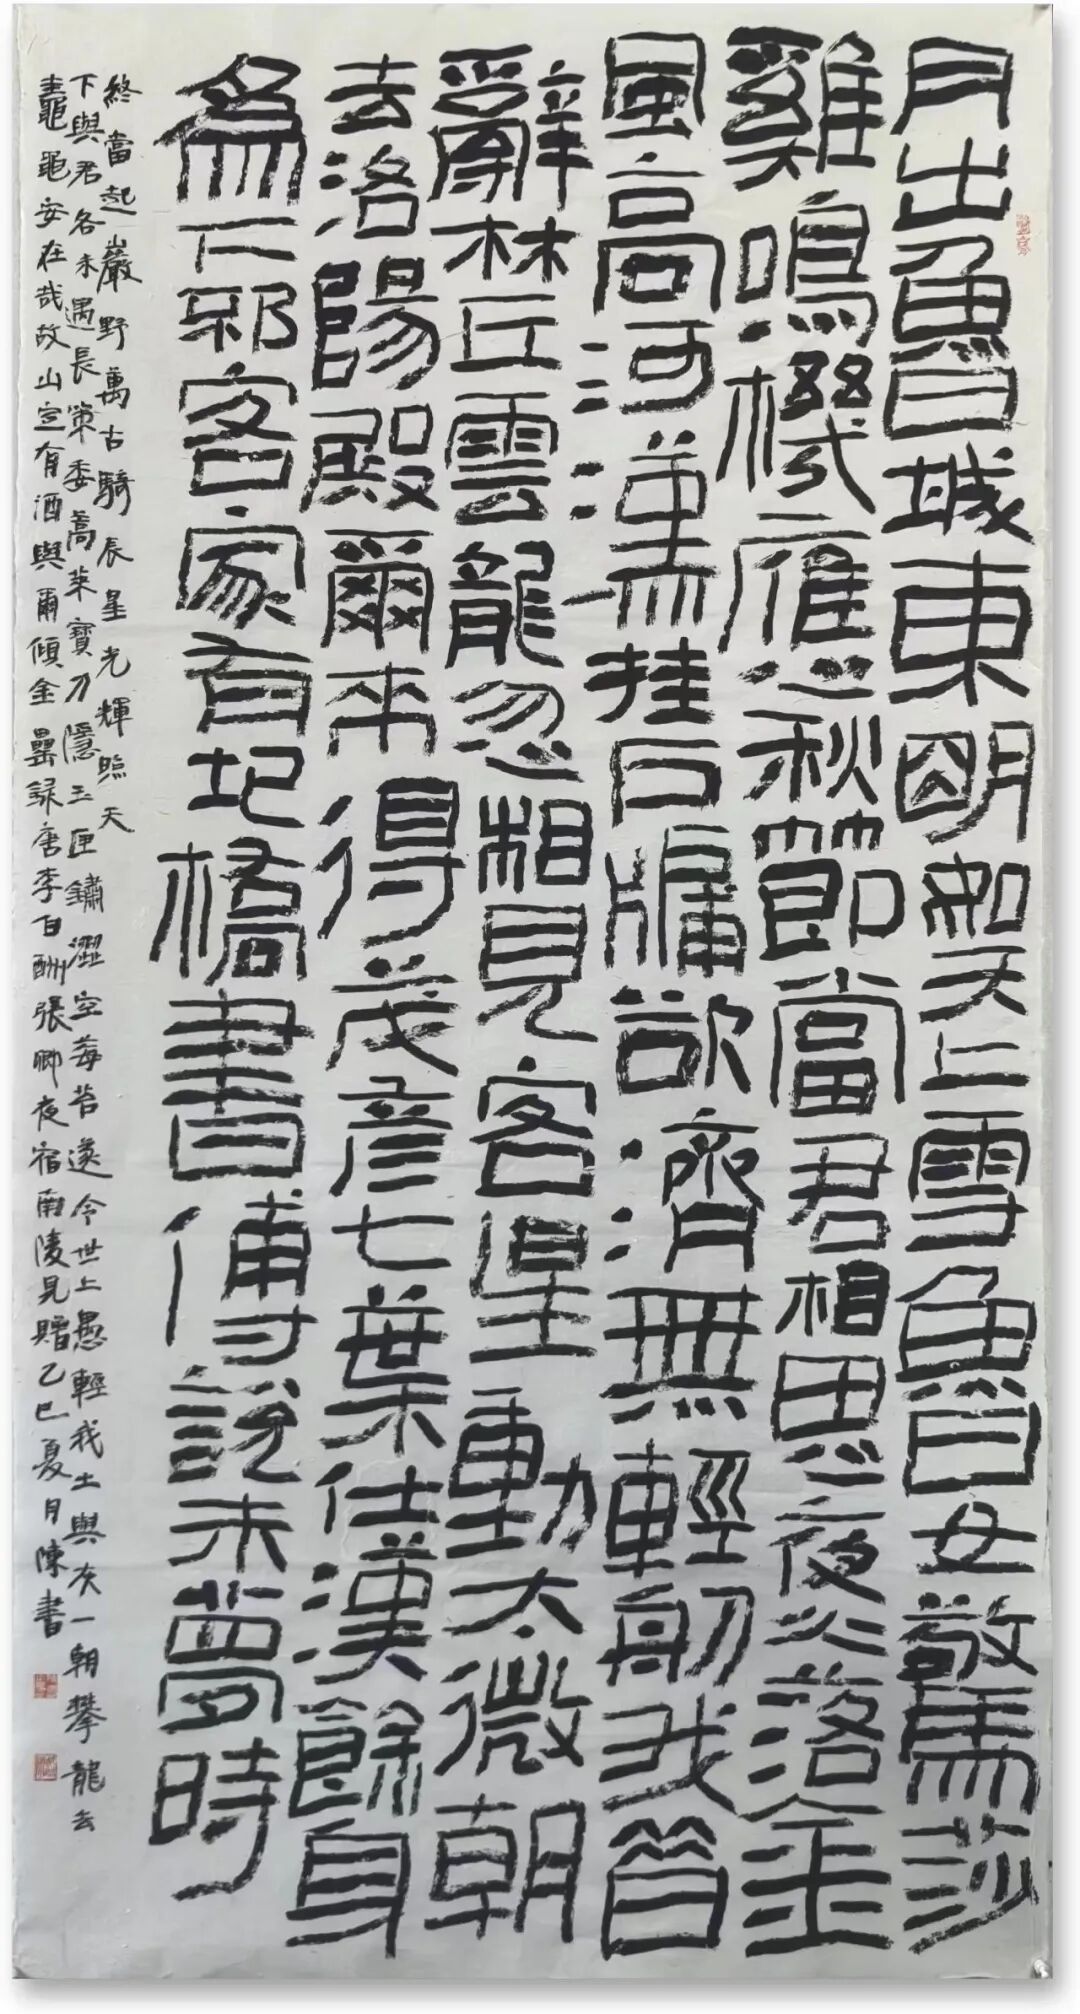 月出魯城東明如天上雪魯女驚莎
雞鳴機應秋節當君相思夜火落金
風高河漢挂戶牖欲濟無輕舠我昔
辭林丘雲龍忽相見客星動太微朝
去洛陽殿爾來得茂彥七葉仕漢餘身
為下邳客家有圯橋書傅說未夢時
終當起巖野萬古騎辰星光輝照天
下與君各未遇長策委蒿萊寶刀隱玉匣鏽澀空莓苔遂令世上愚輕我土與灰一朝攀龍去
鼃黽安在哉故山定有酒與爾傾金罍錄唐李白酬張卿夜宿南陵見贈乙巳夏月陳書